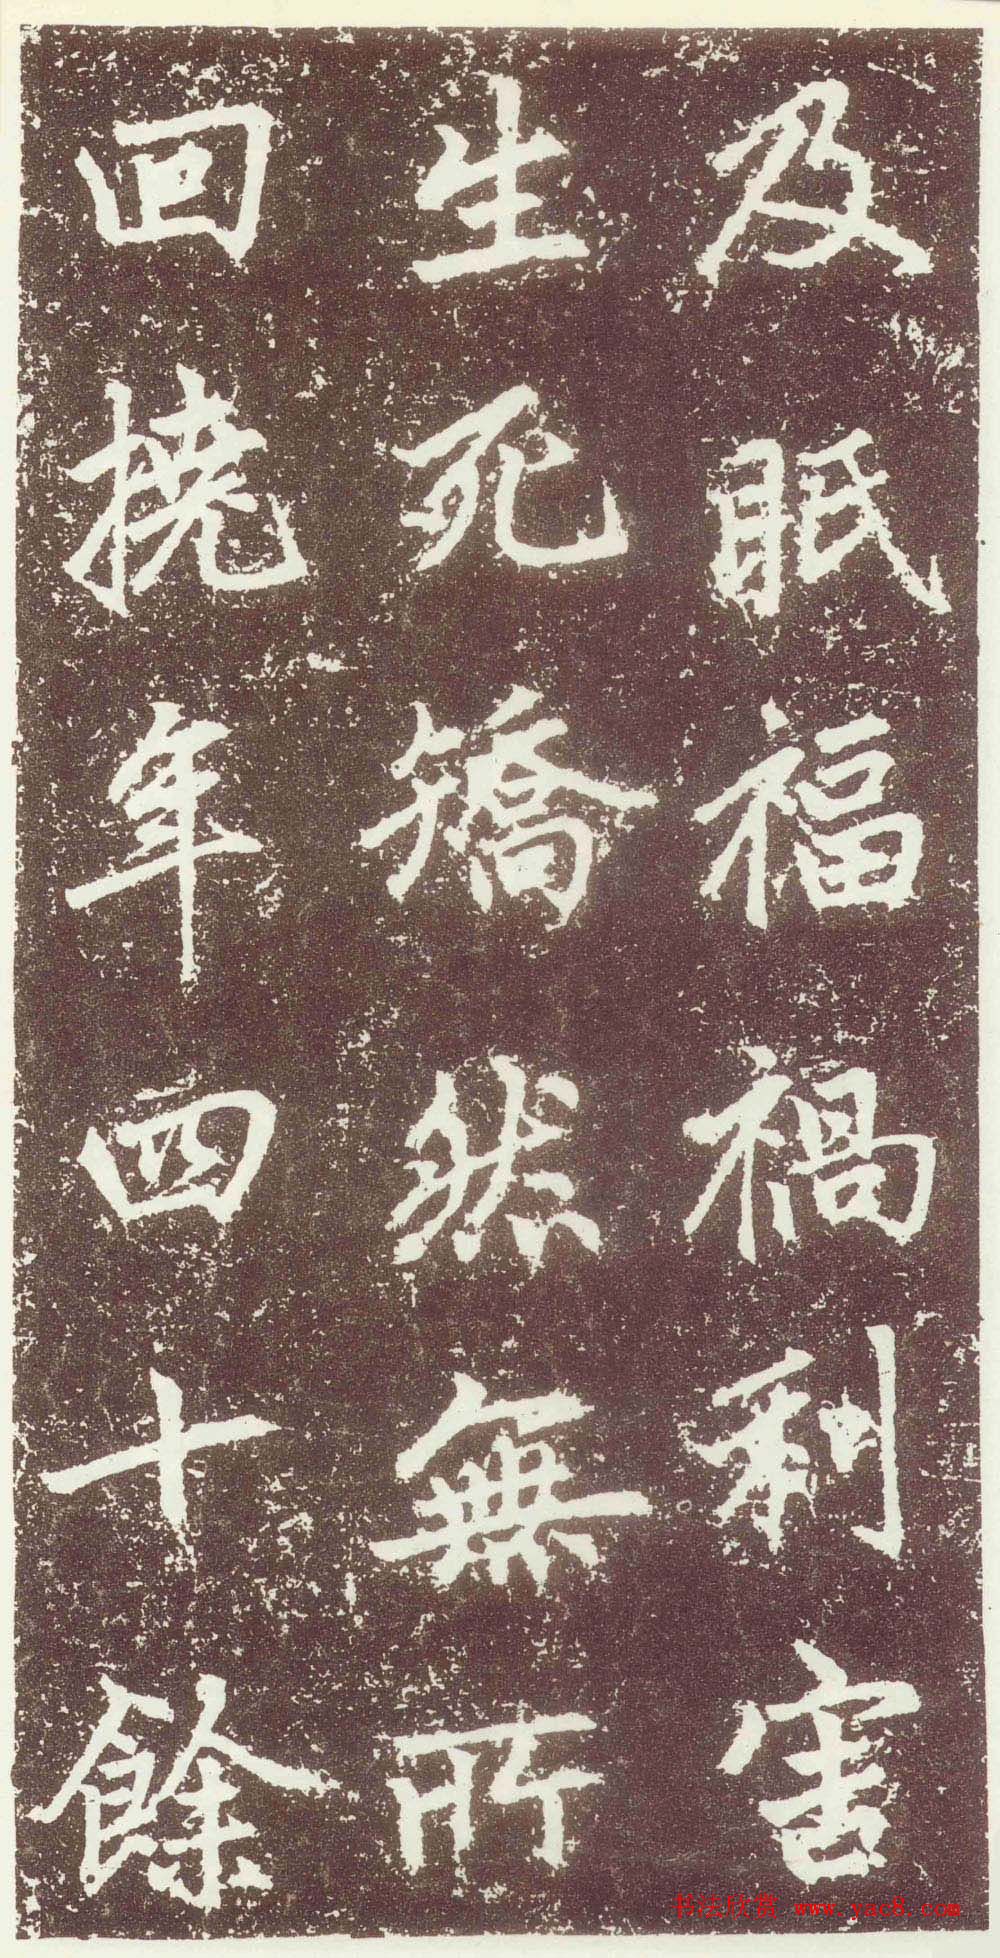 及眂福禍利害
生死矯然無所
回撓年四十餘
书法欣赏 www.yac8.com